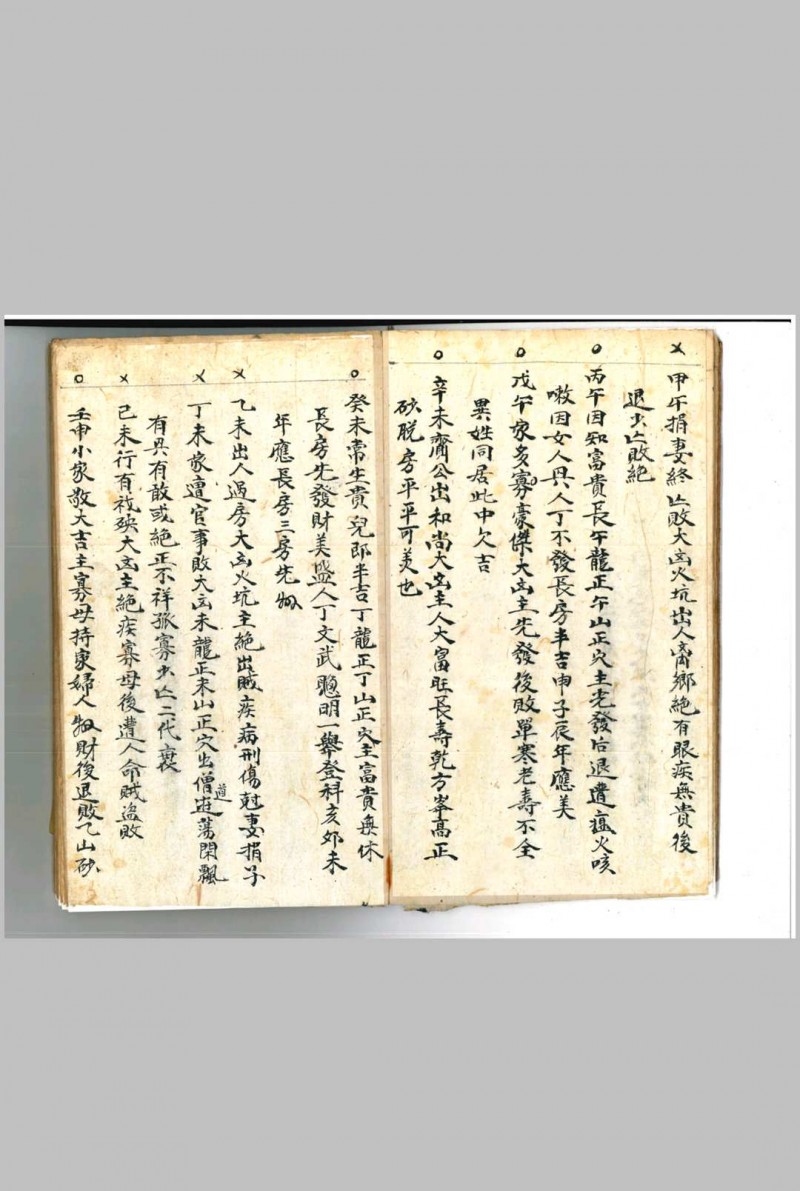 甲午損妻終亡敗大凶火坑出人離鄉絕有眼疾無貴後
退少亡敗絕
丙午因知富貴長午龍正午山正穴主先發后退遭瘟火咳
嗽因女人興人丁不發長房半吉申子辰年應美
戊午家多寡豪傑大凶主先發後敗單寒老壽不全
異姓同居此中欠吉
辛未齋公出和尚大凶主人大富旺長壽乾方峯高正
砂脫房平平可美也
癸未常生貴兒郎半吉丁龍正丁山正穴主富貴無休
長房先發財美盛人丁文武聰明一舉登科亥卯未
年應長房三房先
乙未出人過房大凶火坑主絕出賊疾病刑傷尅妻損子
丁未家遭官事敗大凶未龍正未山正穴出僧道遊蕩閑飄
有興有敗或絕正不祥孤寡少亡二代衰
己未行有禍殃大凶主絕疾寡母後遭人命賊盜敗
壬申小家敬大吉主寡母持家婦人 財後退敗乙山砂